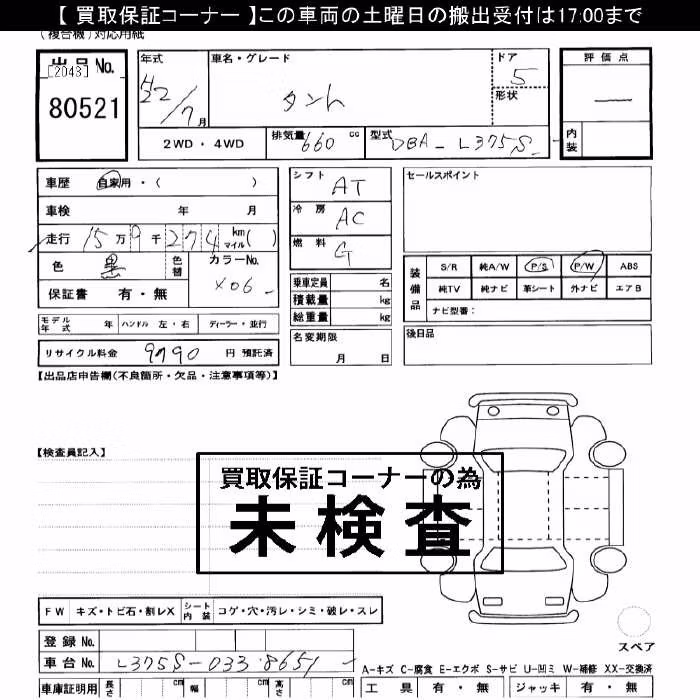 【 買取保証コーナー 】この車両の土曜日の搬出受付は17:00まで
(複合機)対応用紙
出品 No.
[2043]
80521
年式
H22/7月
車名・グレード
タント
ドア
5
形状
評価点
—
内装
2WD ・ 4WD
排気量 660 cc
型式 DBA - L375S -
車歴 自家用・( )
車検 年 月
走行 15万9千274 km マイル( )
色 黒 色替
カラーNo. X06 -
保証書 有・無
シフト AT
冷房 AC
燃料 G
乗車定員 名
積載量 kg
総重量 kg
名変期限
月 日
セールスポイント
装備品
S/R 純A/W P/S P/W ABS
純TV 純ナビ 革シート 外ナビ エアB
ナビ型番:
後日品
モデル年式 年 ハンドル 左・右 ディーラー・並行
リサイクル料金 9790 円 預託済
【出品店申告欄(不良箇所・欠品・注意事項等)】
【検査員記入】
買取保証コーナーの為
未検査
FW キズ・トビ石・割レX シート内装 コゲ・穴・汚レ・シミ・破レ・スレ
スペア
登録 No.
車台 No. L375S-0338651 -
A-キズ C-腐食 E-エクボ S-サビ U-凹ミ W-補修 XX-交換済
車庫証明用 長さ cm 幅 cm 高さ cm
工具 有・無 ジャッキ 有・無